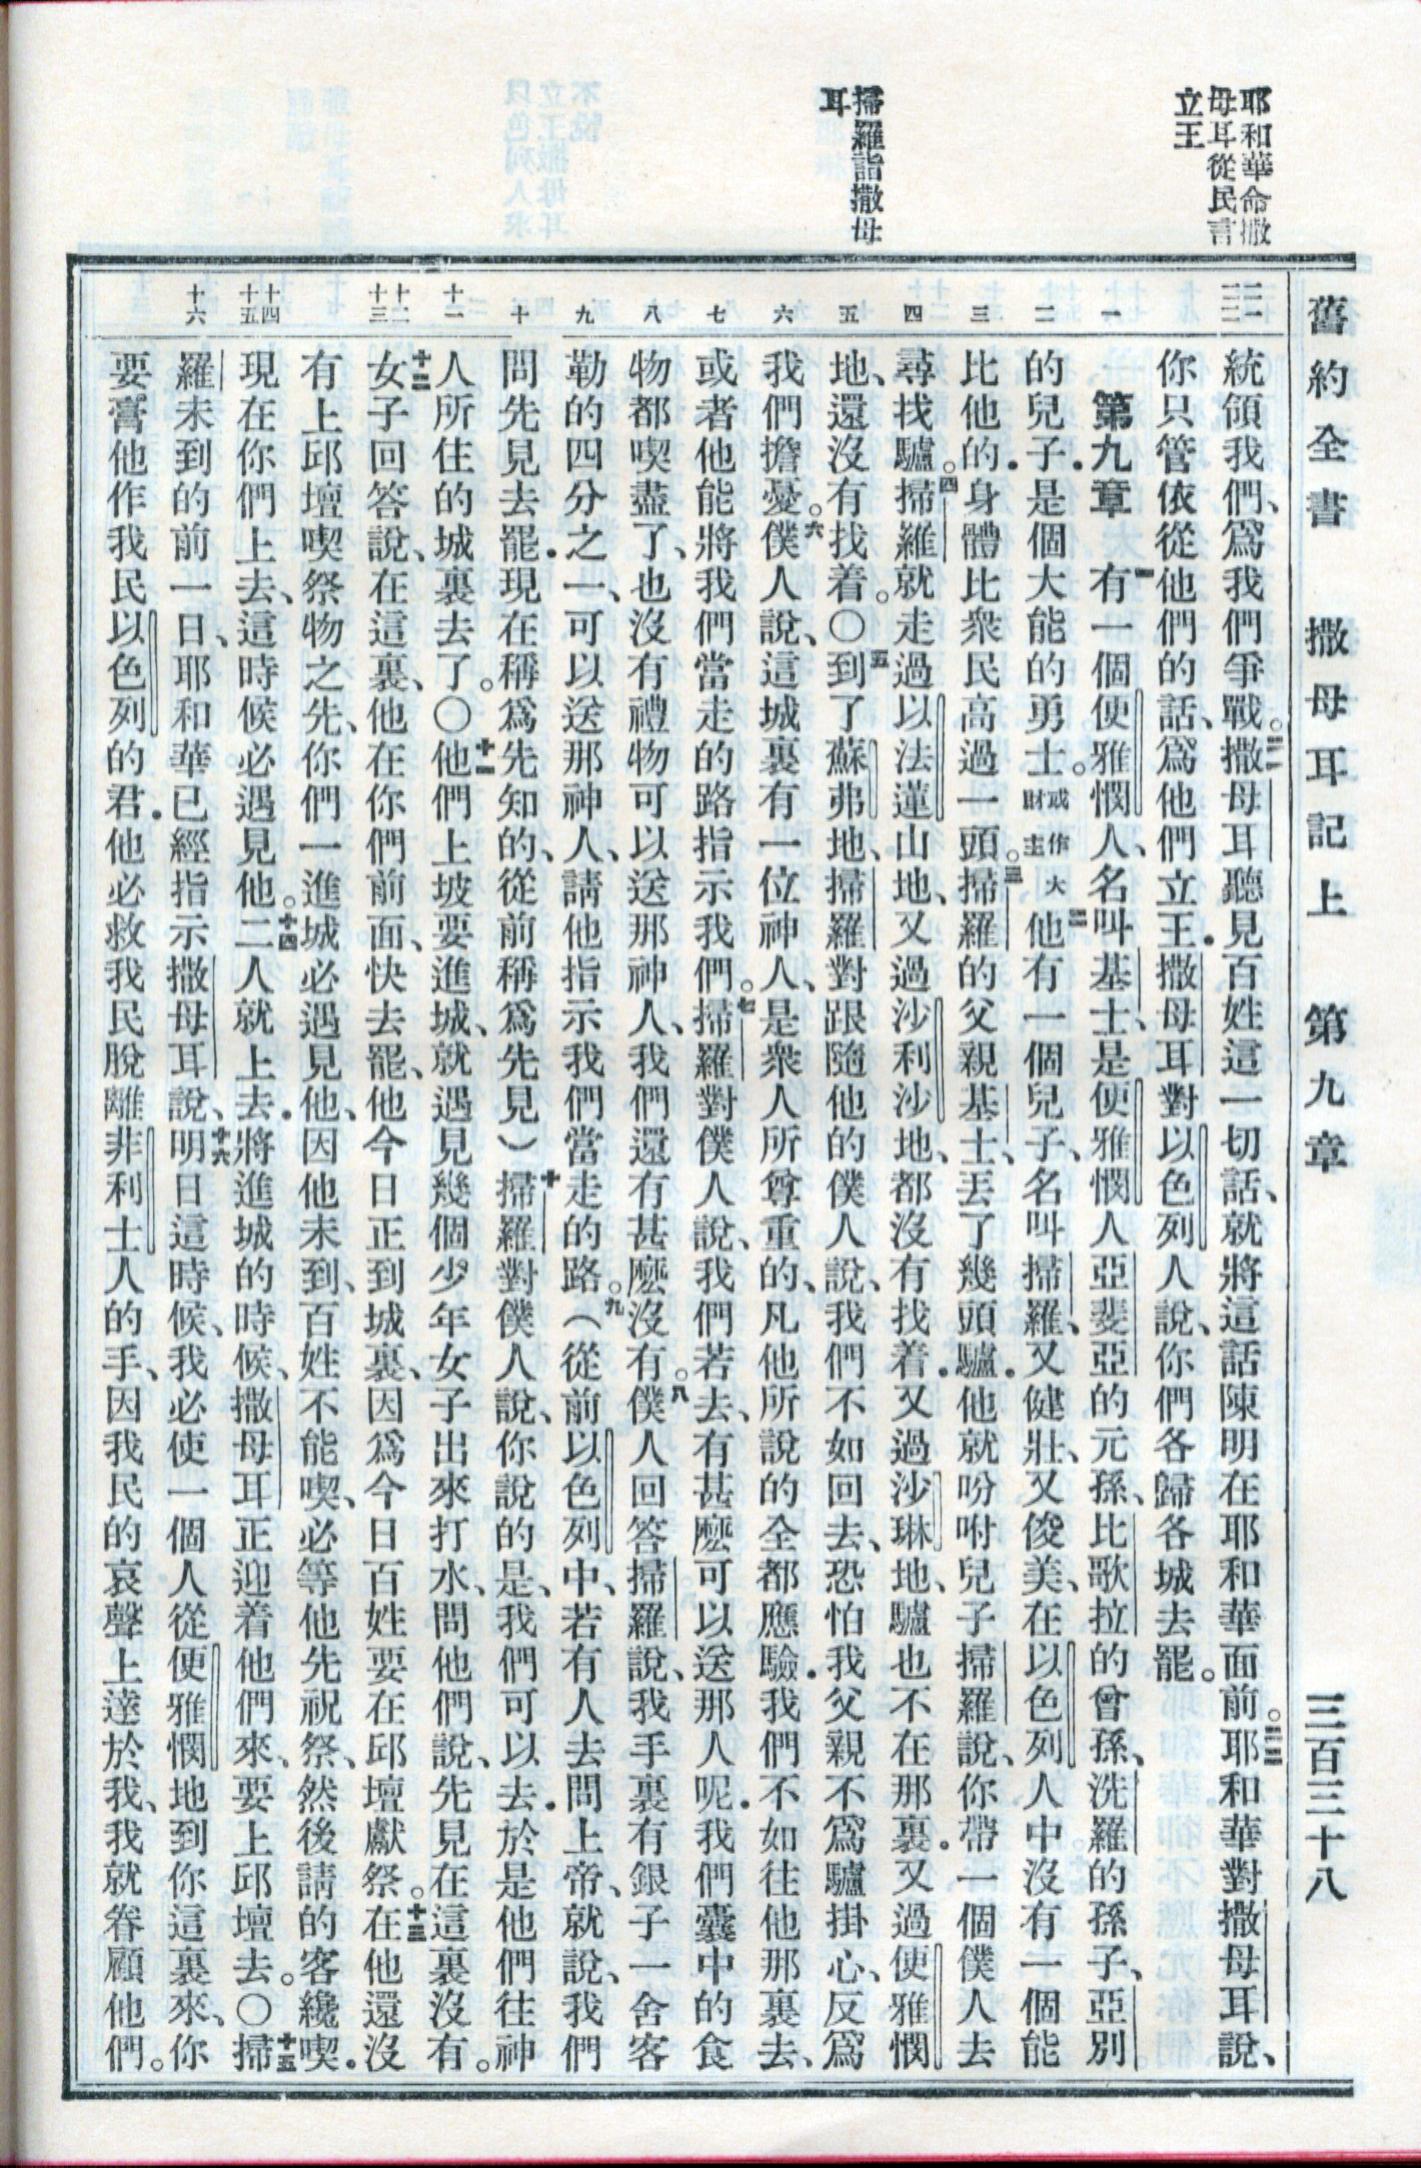 舊約全書 撒母耳記上 第九章 三百三十八
耶和華命撒
母耳從民言
立王
掃羅詣撒母
耳
統領我們、爲我們爭戰。二一撒母耳聽見百姓這一切話、就將這話陳明在耶和華面前。二二耶和華對撒母耳說、
你只管依從他們的話、爲他們立王．撒母耳對以色列人說、你們各歸各城去罷。
第九章 一有一個便雅憫人、名叫基士、是便雅憫人亞斐亞的元孫、比歌拉的曾孫、洗羅的孫子、亞別
的兒子．是個大能的勇士。或作大財主二他有一個兒子、名叫掃羅、又健壯、又俊美、在以色列人中沒有一個能
比他的．身體比衆民高過一頭。三掃羅的父親基士、丟了幾頭驢．他就吩咐兒子掃羅說、你帶一個僕人去
尋找驢。四掃羅就走過以法蓮山地、又過沙利沙地、都沒有找着．又過沙琳地、驢也不在那裏．又過便雅憫
地、還沒有找着。〇五到了蘇弗地、掃羅對跟隨他的僕人說、我們不如回去、恐怕我父親不爲驢掛心、反爲
我們擔憂。六僕人說、這城裏有一位神人、是衆人所尊重的、凡他所說的全都應驗．我們不如往他那裏去、
或者他能將我們當走的路指示我們。七掃羅對僕人說、我們若去、有甚麼可以送那人呢．我們囊中的食
物都喫盡了、也沒有禮物可以送那神人、我們還有甚麼沒有。八僕人回答掃羅說、我手裏有銀子一舍客
勒的四分之一、可以送那神人、請他指示我們當走的路。九（從前以色列中、若有人去問上帝、就說、我們
問先見去罷．現在稱爲先知的、從前稱爲先見）十掃羅對僕人說、你說的是、我們可以去．於是他們往神
人所住的城裏去了。〇十一他們上坡要進城、就遇見幾個少年女子出來打水、問他們說、先見在這裏沒有。
十二女子回答說、在這裏、他在你們前面、快去罷、他今日正到城裏、因爲今日百姓要在邱壇獻祭。十三在他還沒
有上邱壇喫祭物之先、你們一進城必遇見他、因他未到、百姓不能喫、必等他先祝祭、然後請的客纔喫．
現在你們上去、這時候必遇見他。十四二人就上去．將進城的時候、撒母耳正迎着他們來、要上邱壇去。〇十五掃
羅未到的前一日、耶和華已經指示撒母耳說、十六明日這時候、我必使一個人從便雅憫地到你這裏來、你
要膏他作我民以色列的君．他必救我民脫離非利士人的手、因我民的哀聲上達於我、我就眷顧他們。